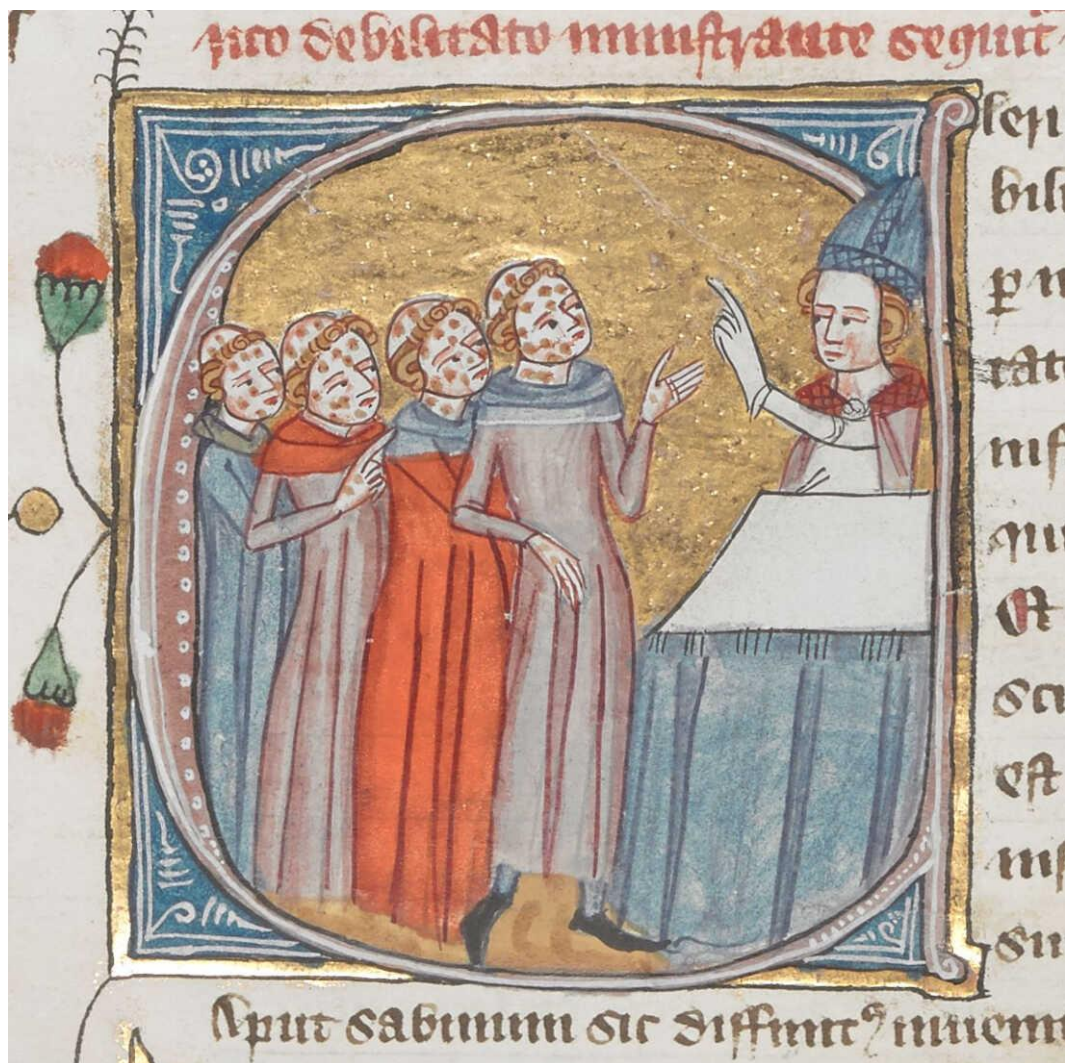 rico debilitato ministrante sequit
leri
bili
ꝑ
tate
nis
qui
Et
sci
est
inf
su
Aput sabinum sic diffinitꝰ inueni